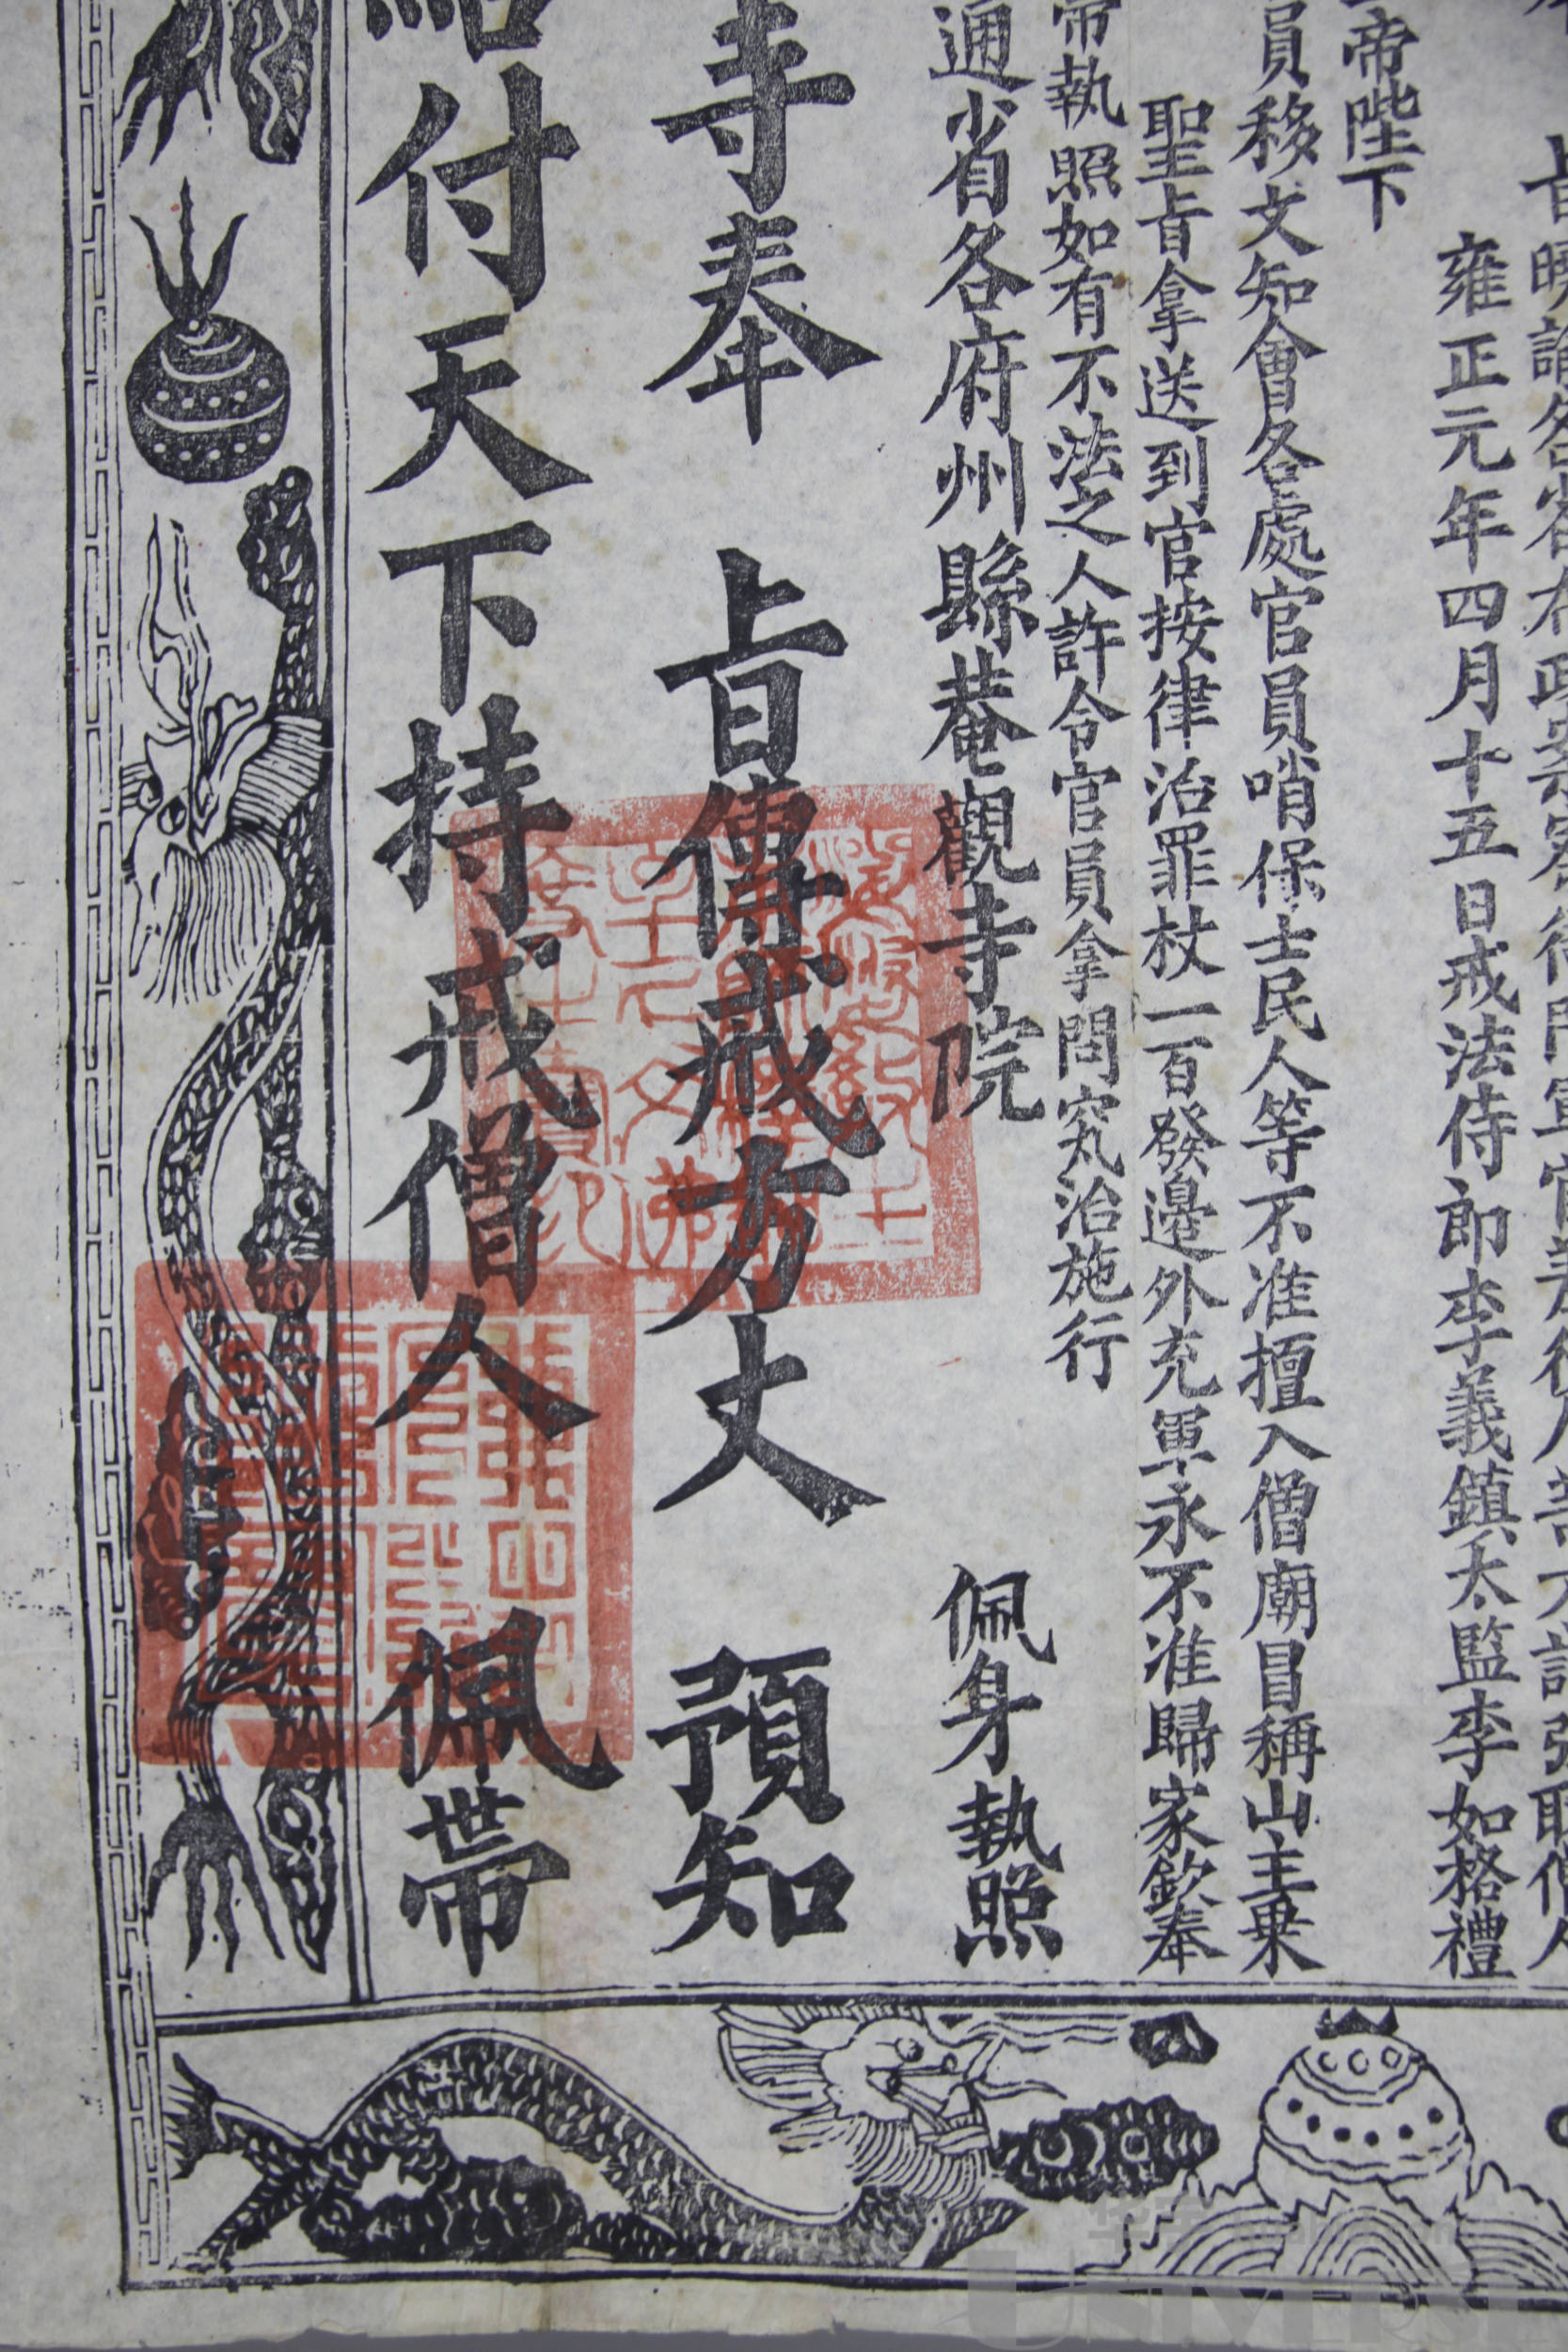 旨曉諭各省布政
雍正元年四月十五日戒法侍郎李義鎮太監李如格禮
帝陛下
員移文知會各處官員哨保士民人等不准擅入僧廟冒稱山主乗
聖旨拿送到官按律治罪杖一百發邊外充軍永不准歸家欽奉
帶執照如有不法之人許令官員拿問究治施行
通省各府州縣菴觀寺院 佩身執照
寺奉 旨傳戒方丈 預知
付天下持戒僧人 佩帶
UNIVERS